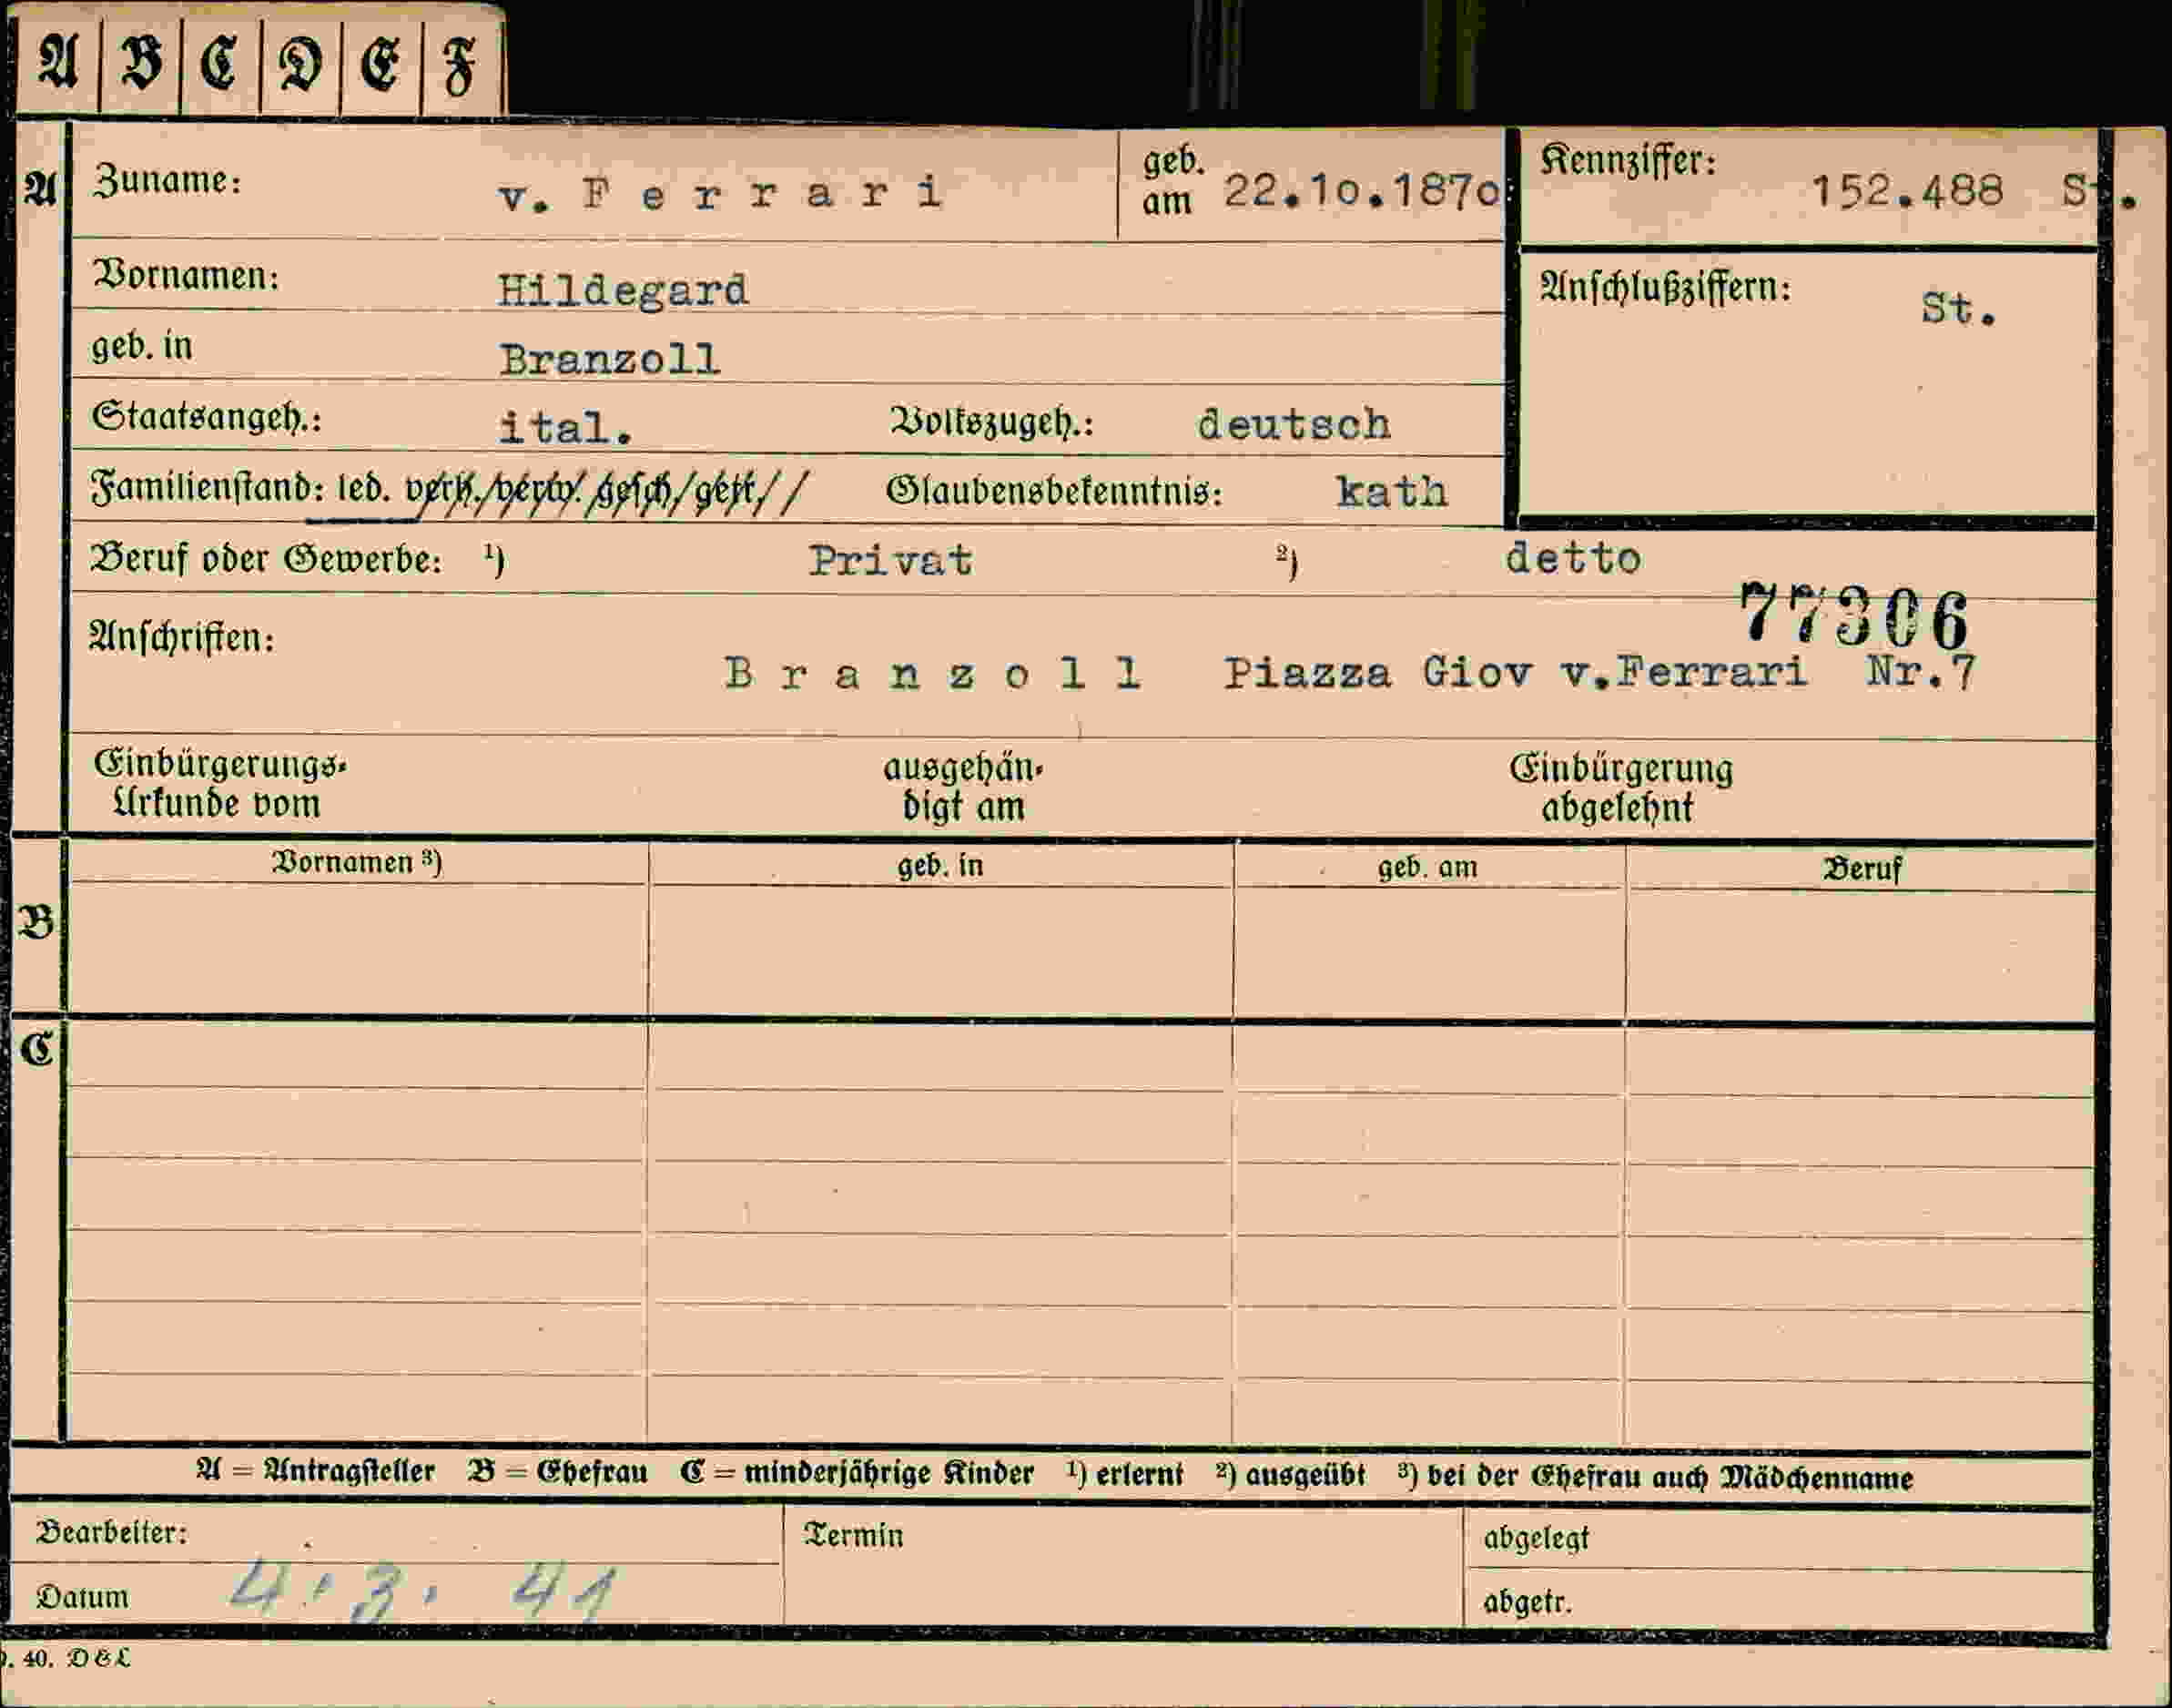 A B C D E F
A Zuname: v. F e r r a r i geb. am 22.1o.187o Kennziffer: 152.488 St.
Vornamen: Hildegard Anschlußziffern: St.
geb. in Branzoll
Staatsangeh.: ital. Volkszugeh.: deutsch
Familienstand: led. verh./verw./gesch/getr.// Glaubensbekenntnis: kath
Beruf oder Gewerbe: ¹) Privat ²) detto
77306
Anschriften: B r a n z o l l Piazza Giov v.Ferrari Nr.7
Einbürgerungs- ausgehän- Einbürgerung
Urkunde vom digt am abgelehnt
Vornamen ³) geb. in geb. am Beruf
B
C
A = Antragsteller B = Ehefrau C = minderjährige Kinder ¹) erlernt ²) ausgeübt ³) bei der Ehefrau auch Mädchenname
Bearbeiter: Termin abgelegt
Datum 4. 3. 41 abgetr.
40. D & L